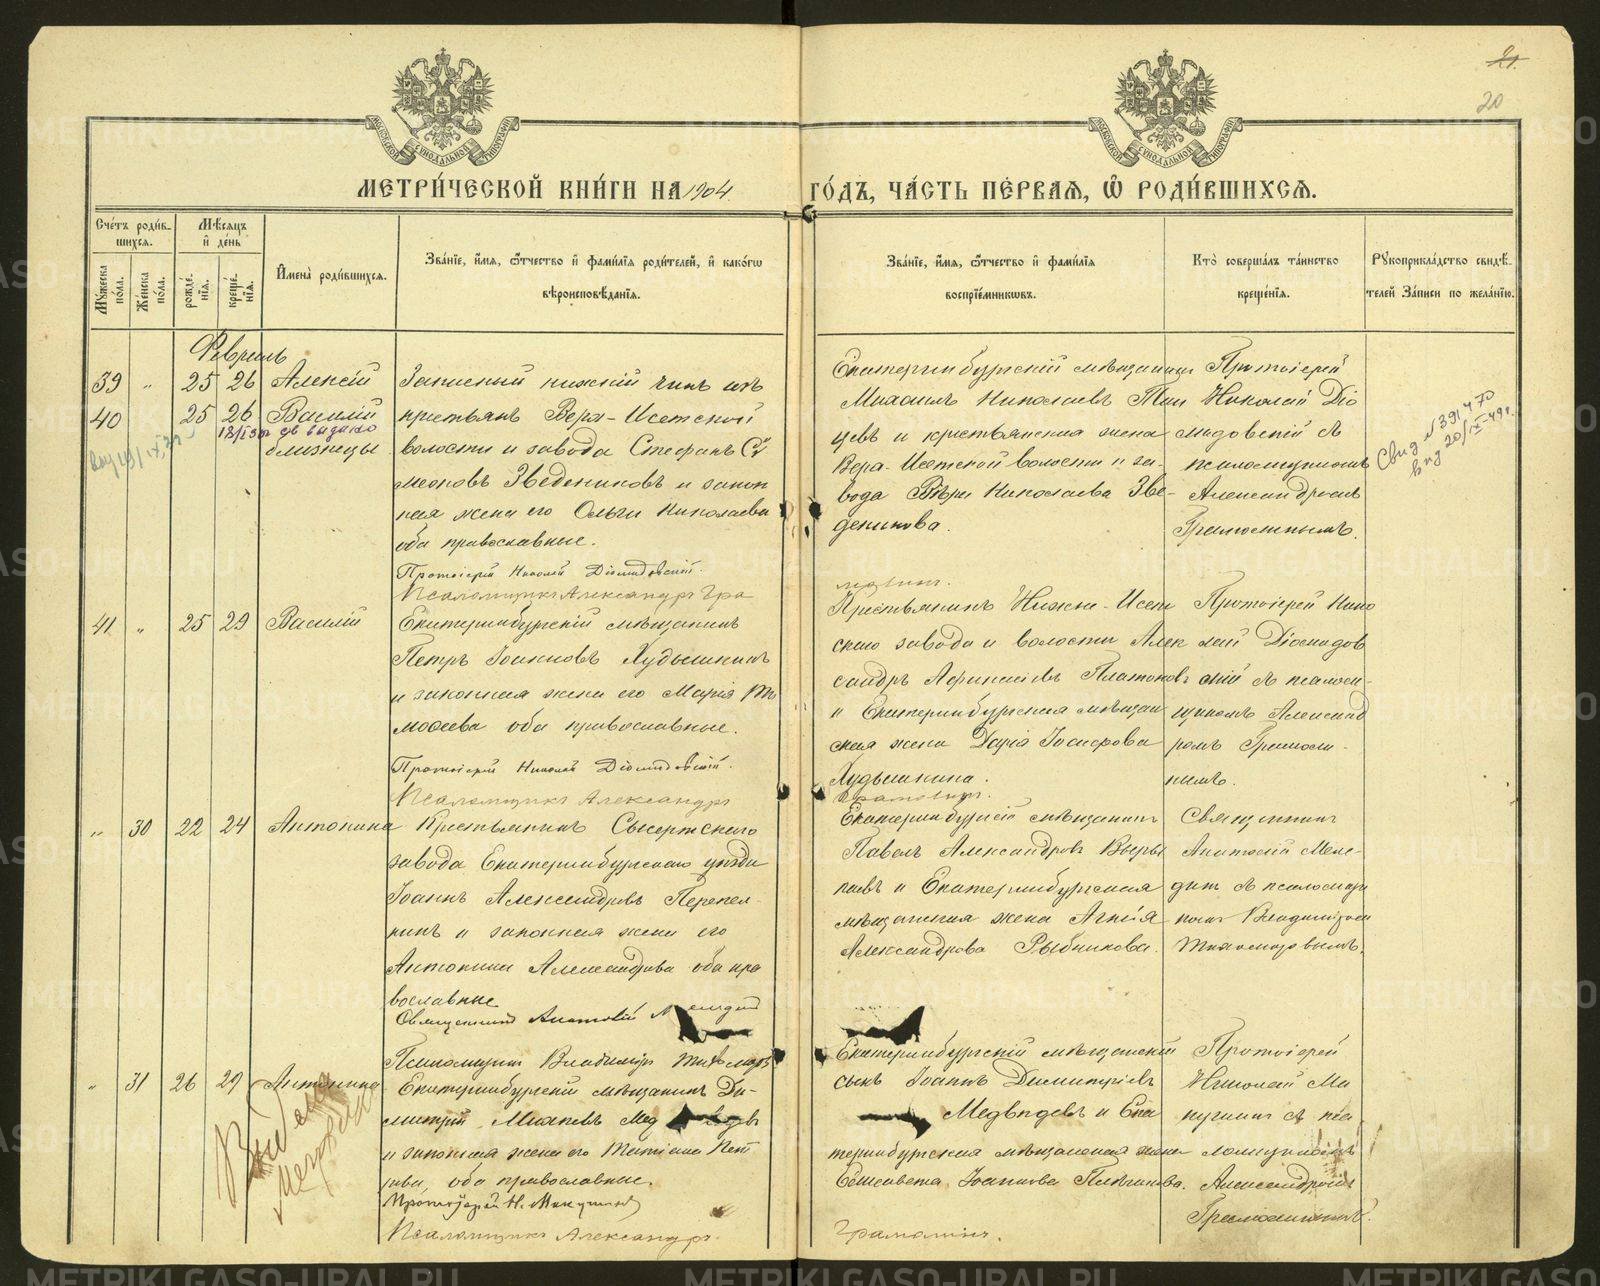 21.
20
МОСКОВСКОЙ СѴНОДАЛЬНОЙ ТИПОГРАФІИ
МОСКОВСКОЙ СѴНОДАЛЬНОЙ ТИПОГРАФІИ
МЕТРИ́ЧЕСКОЙ КНИ́ГИ НА 1904
ГО́ДЪ, ЧА́СТЬ ПЕ́РВАЯ, Ѽ РОДИ́ВШИХСЯ.
Сче́тъ роди́в-
шихся.
Мѣ́сяцъ
и҆ де́нь
Мꙋ́жеска по́ла.
Же́нска по́ла.
рожде́-
нїя.
креще́-
нїя.
И҆мена̀ роди́вшихся.
Зва́нїе, и҆́мя, ѻ҆́тчество и҆ фами́лїя роди́телей, и҆ како́гѡ
вѣроисповѣ́данїя.
Зва́нїе, и҆́мя, ѻ҆́тчество и҆ фами́лїя
воспрїе́мникѡвъ.
Кто̀ соверша́лъ та́инство
креще́нїя.
Рꙋкоприкла́дство свидѣ́-
телей за́писи по жела́нїю.
Февраль
39 „ 25 26 Алексій
40 25 26 Василій
18/I 50г св выдано
близнецы
Запасный нижній чинъ изъ
крестьянъ Верх-Исетской
волости и завода Стефанъ Си
меоновъ Звездениковъ и закон
ная жена его Ольга Николаева
оба православные.
Протоіерей Николай Діомидовскій.
Псаломщикъ Александръ Гра
Екатеринбургскій мѣщанинъ
Михаилъ Николаевъ
цевъ и крестьянская жена
Верх-Исетской волости и за-
вода Вѣра Николаева Зве-
деникова.
матинъ.
Протоіерей
Николай Діо
мидовскій съ
псаломщикомъ
Александромъ
Грамолинымъ.
Свид №391470
выд 20/IX-49г.
41 „ 25 29 Василій
Екатеринбургскій мѣщанинъ
Петръ Іоанновъ Худышкинъ
и законная жена его Марія Ти
моѳеева оба православные.
Протоіерей Николай Діомидовскій.
Псаломщикъ Александръ
Крестьянинъ Нижне-Исет
скаго завода и волости Алек
сандръ Афанасіевъ Платоновъ
и Екатеринбургская мѣщан
ская жена Дарія Іосифова
Худышкина.
Грамолинъ.
Протоіерей Нико
лай Діомидов
скій съ псалом-
щикомъ Александ
ромъ Грамоли-
нымъ.
„ 30 22 24 Антонина
Крестьянинъ Сысертскаго
завода Екатеринбургскаго уѣзда
Іоаннъ Александровъ Перепел-
кинъ и законная жена его
Антонина Александрова оба пра
вославные
Священникъ Анатолій
Псаломщикъ Владиміръ Тихомировъ
Екатеринбургскій мѣщанинъ
Павелъ Александровъ
и Екатеринбургская
мѣщанская жена Агнія
Александрова Рыбникова.
Священникъ
Анатолій Меле-
динъ съ псаломщи
комъ Владиміромъ
Тихомировымъ.
„ 31 26 29 Антонина
Екатеринбургскій мѣщанинъ Ди-
митрій Мед
и законная жена его Татіана Пет
рова, оба православные.
Протоіерей Н. Макушинъ
Псаломщикъ Александръ
Екатеринбургскій мѣщанскій
сынъ Іоаннъ Димитріевъ
Медвѣдевъ и Ека
теринбургская мѣщанская жена
Елисавета Іоаннова
Грамолинъ.
Протоіерей
Николай Ма
кушинъ съ пса
ломщикомъ
Александромъ
Грамолинымъ.